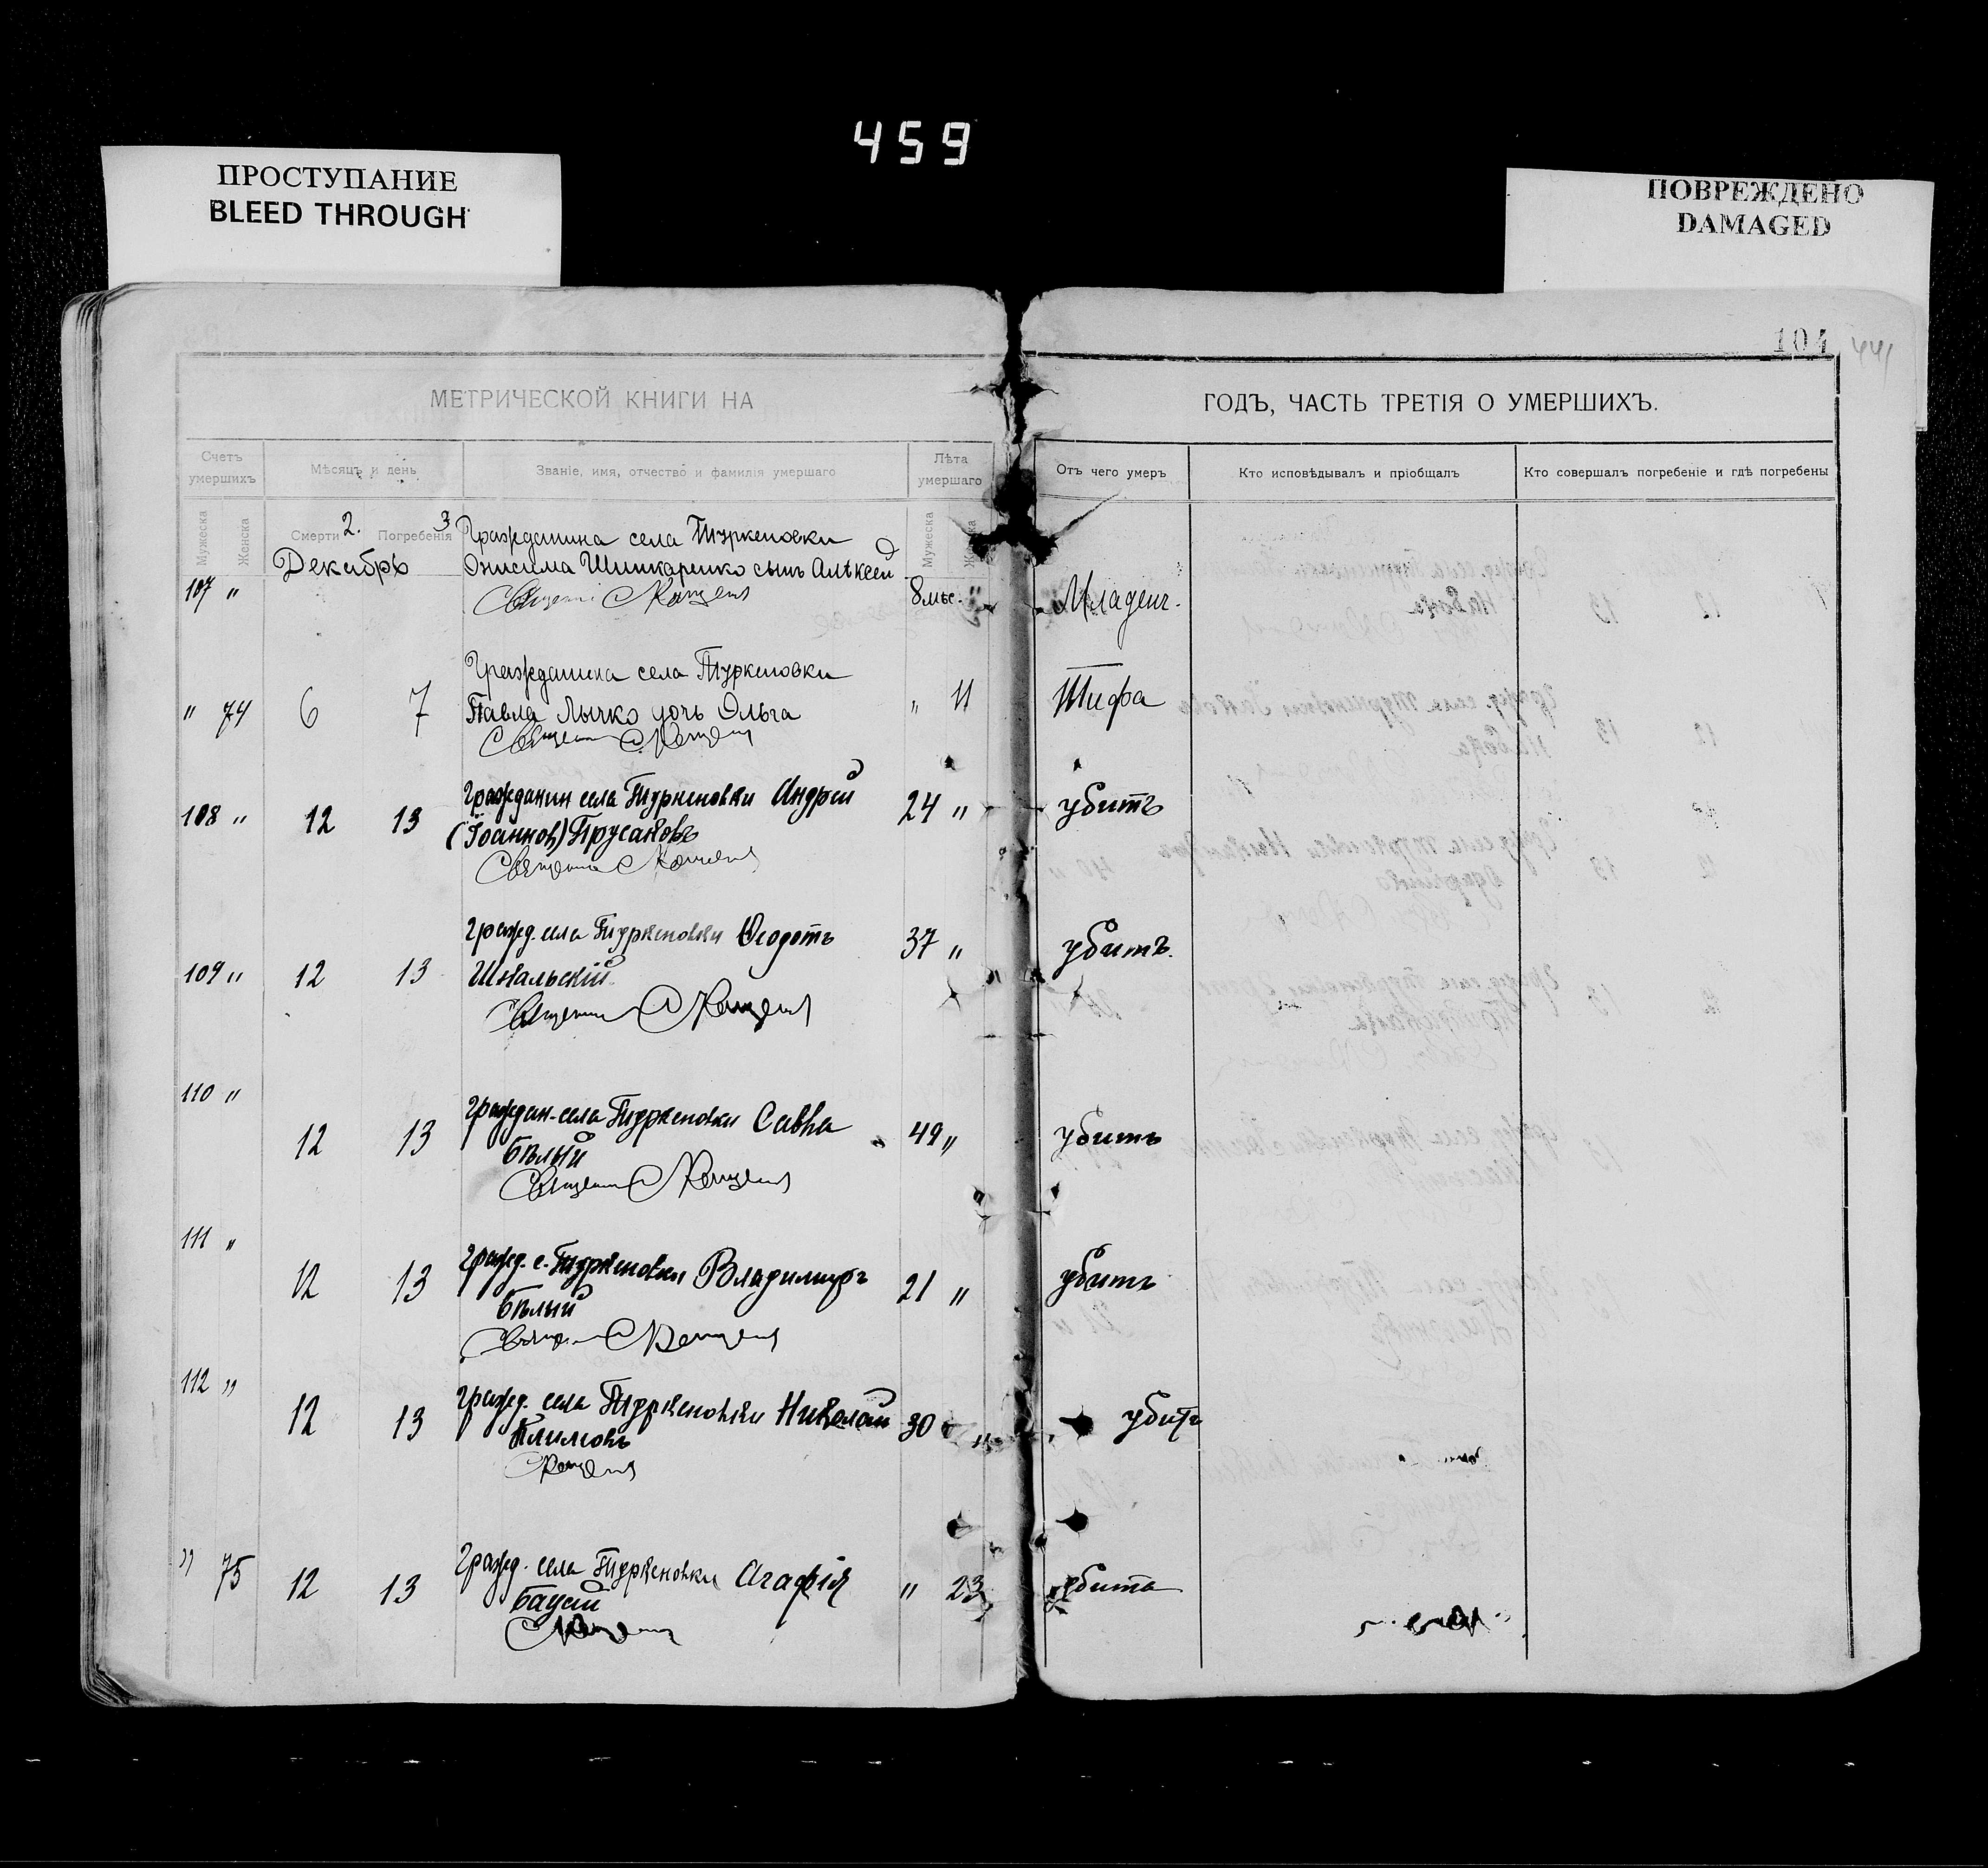 459
ПРОСТУПАНИЕ
BLEED THROUGH
ПОВРЕЖДЕНО
DAMAGED
104
441
МЕТРИЧЕСКОЙ КНИГИ НА
ГОДЪ, ЧАСТЬ ТРЕТІЯ О УМЕРШИХЪ.
Счетъ умершихъ
Мѣсяцъ и день
Званіе, имя, отчество и фамилія умершаго
Лѣта умершаго
Отъ чего умеръ
Кто исповѣдывалъ и пріобщалъ
Кто совершалъ погребеніе и гдѣ погребены
Мужеска
Женска
Смерти
Погребенія
Мужеска
Женска
2. 3 Гражданина села Туркеновки
Декабрь Онисима Шинкаренко сынъ Алѣксей
107 " 8 мѣс. " Младенч.
Священ
Гражданина села Туркеновки
" 74 6 7 Павла Лычко дочь Ольга " 11 Тифа
Священ
Гражданин села Туркеновки Андрей
108 " 12 13 (Іоаннов) Прусаковъ 24 " убитъ
Священ
Гражд. села Туркеновки Ѳеодотъ 37 " убитъ.
109 " 12 13 Шкальскій
Священ
110 "
Граждан. села Туркеновки Савва
12 13 Бѣлый 49 " убитъ
Священ
111 "
Гражд. с. Туркеновки Владимиръ
12 13 Бѣлый 21 " убитъ
Священ
112 "
Гражд. села Туркеновки Николай
12 13 Климовъ 30 " убитъ
Гражд. села Туркеновки Агафія
" 75 12 13 " 23 убита